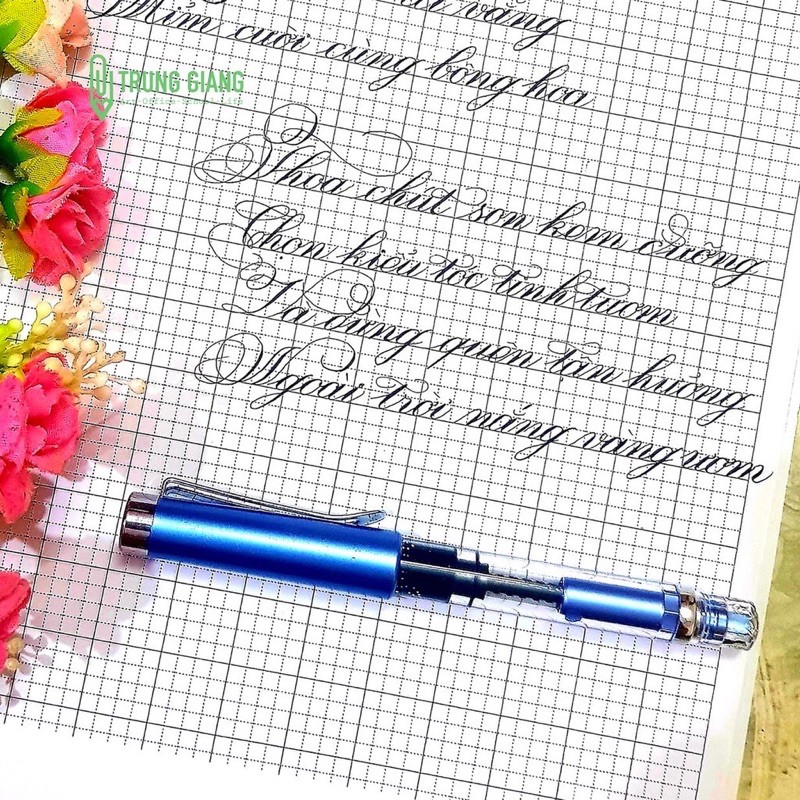 vắng
Mỉm cười cùng bông hoa
TRUNG GIANG
Thoa chút son kem dưỡng
Chọn kiểu tóc tinh tươm
Ta dừng quên tận hưởng
Ngoài trời nắng vàng ươm